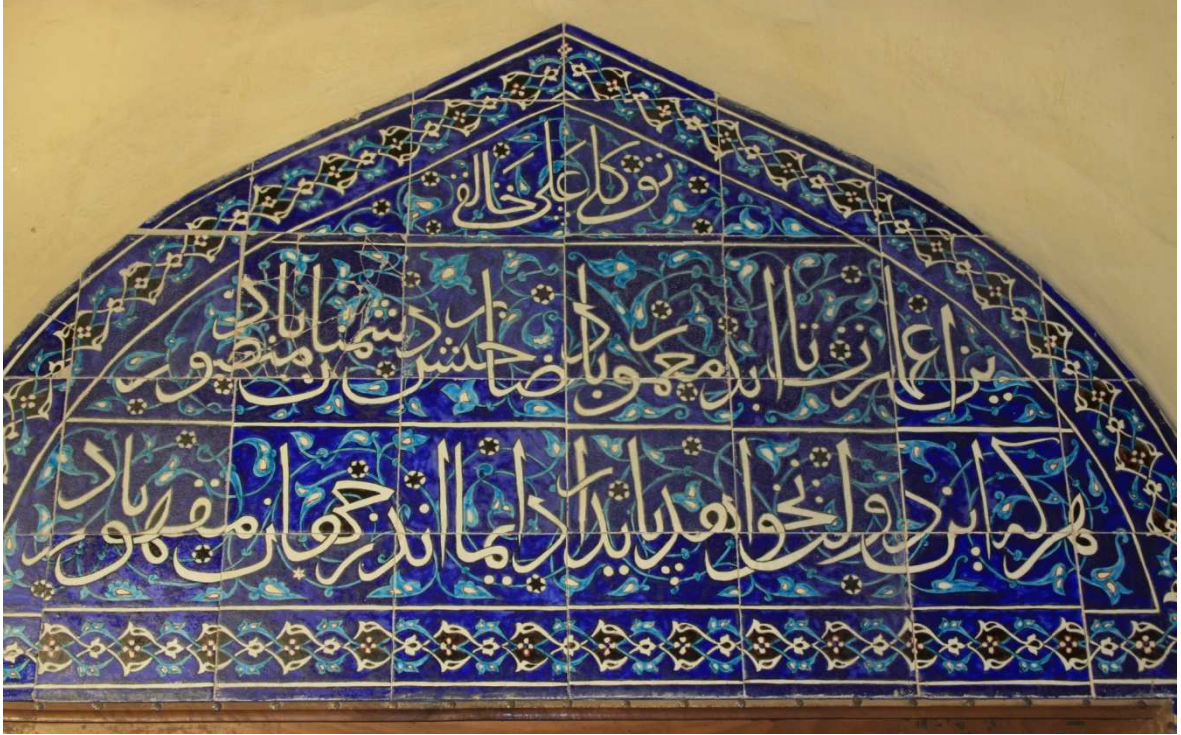 توکلی علی خالقی
تا ابد معمور باد صاحبش بر دشمنان منصور باد
هر که این دولت نخواهد پایدار دایما اندر جهان مقهور باد